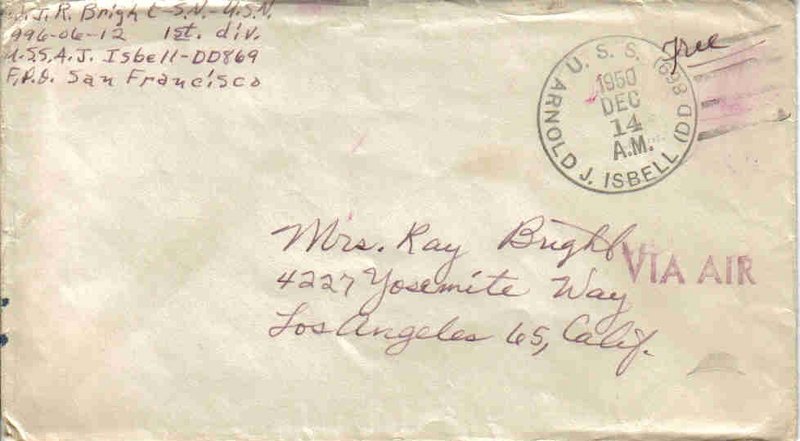 J.R. Bright-S.N.-U.S.N.
996-06-12 1st. div.
U.S.S. A.J. Isbell-DD869
F.P.O. San Francisco
Free
U.S.S. ARNOLD J. ISBELL (DD 869)
1950
DEC
14
A.M.
Mrs. Ray Bright
VIA AIR
4227 Yosemite Way
Los Angeles 65, Calif.